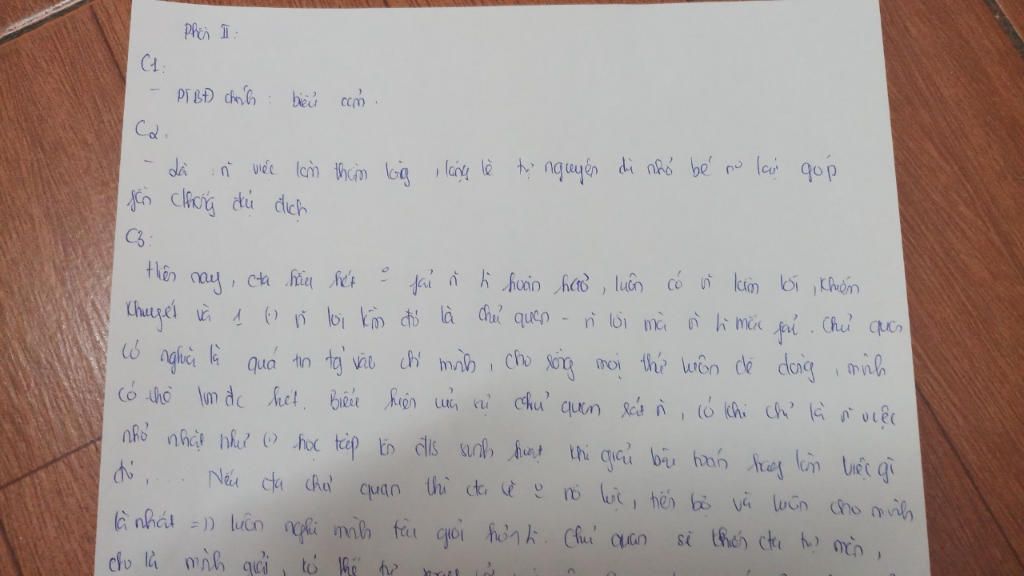 Phần II:
C1:
- PTBĐ chính : biểu cảm.
C2.
- là : n~ việc làm thầm lặng , lặng lẽ tự nguyện dù nhỏ bé lại góp
phần chống dịch
C3:
Hiện nay, cta hầu hết º phải n~ hoàn hảo, luôn có n~ lầm lỗi, khiếm
khuyết và 1 (.) n~ lỗi lầm đó là chủ quan - n~ lỗi mà n~ mắc phải. Chủ quan
có nghĩa là quá tin tg vào mình, cho rằng mọi thứ luôn dễ dàng, mình
có thể làm đc hết. Biểu hiện của sự chủ quan rất n~, có khi chỉ là n~ việc
nhỏ nhặt như (.) học tập đs sinh hoạt khi giải bài toán hay làm việc gì
đó, ... Nếu cta chủ quan thì cta sẽ º nỗ lực, tiến bộ và luôn cho mình
là nhất =)) luôn nghĩ mình tài giỏi hơn. Chủ quan sẽ khiến cta tự mãn,
cho là mình giỏi, có thể tự